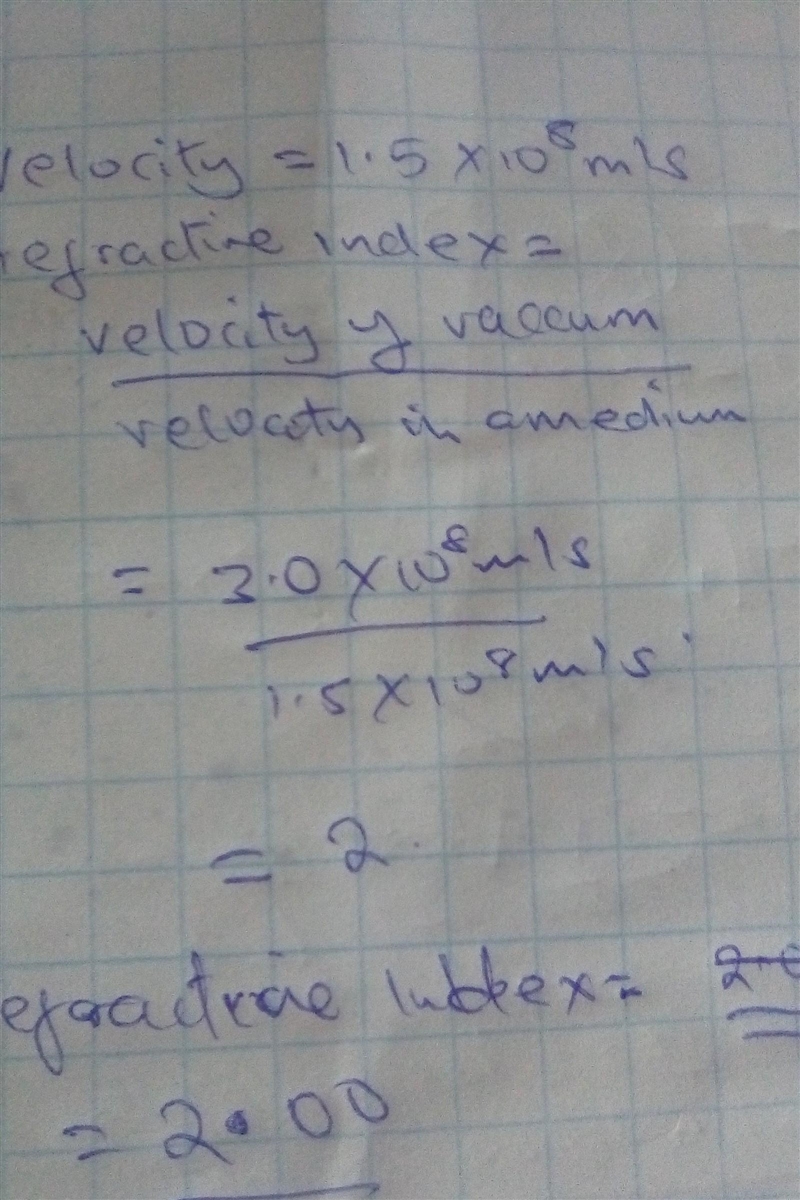 velocity = 1.5 × 10⁸ m/s
refractive index =
velocity y vaccum
velocoty in amedium
= 3.0 × 10⁸ m/s
1.5 × 10⁸ m/s
= 2.
efractive Index =
= 2.00